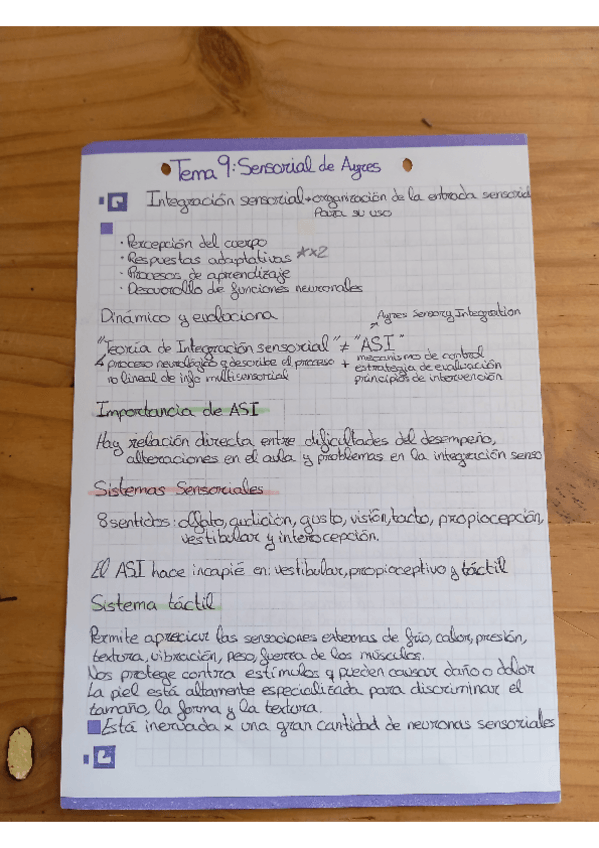 Tema 9: Sensorial de Ayres
Integración sensorial → organización de la entrada sensorial
para su uso
· Percepción del cuerpo
· Respuestas adaptativas ☆x2
· Procesos de aprendizaje
· Desarrollo de funciones neuronales
Dinámico y evoluciona
Ayres Sensory Integration
"Teoría de Integración sensorial" ≠ "ASI"
proceso neurológico q describe el proceso + mecanismo de control
no lineal de info multisensorial
estrategia de evaluación
principios de intervención
Importancia de ASI
Hay relación directa entre dificultades del desempeño,
alteraciones en el aula y problemas en la integración senso
Sistemas Sensoriales
8 sentidos: olfato, audición, gusto, visión, tacto, propiocepción,
vestibular y interocepción.
El ASI hace incapié en: vestibular, propioceptivo y táctil
Sistema táctil
Permite apreciar las sensaciones externas de frío, calor, presión,
textura, vibración, peso, fuerza de los músculos.
Nos protege contra estímulos q pueden causar daño o dolor
La piel está altamente especializada para discriminar el
tamaño, la forma y la textura.
Está inervada x una gran cantidad de neuronas sensoriales